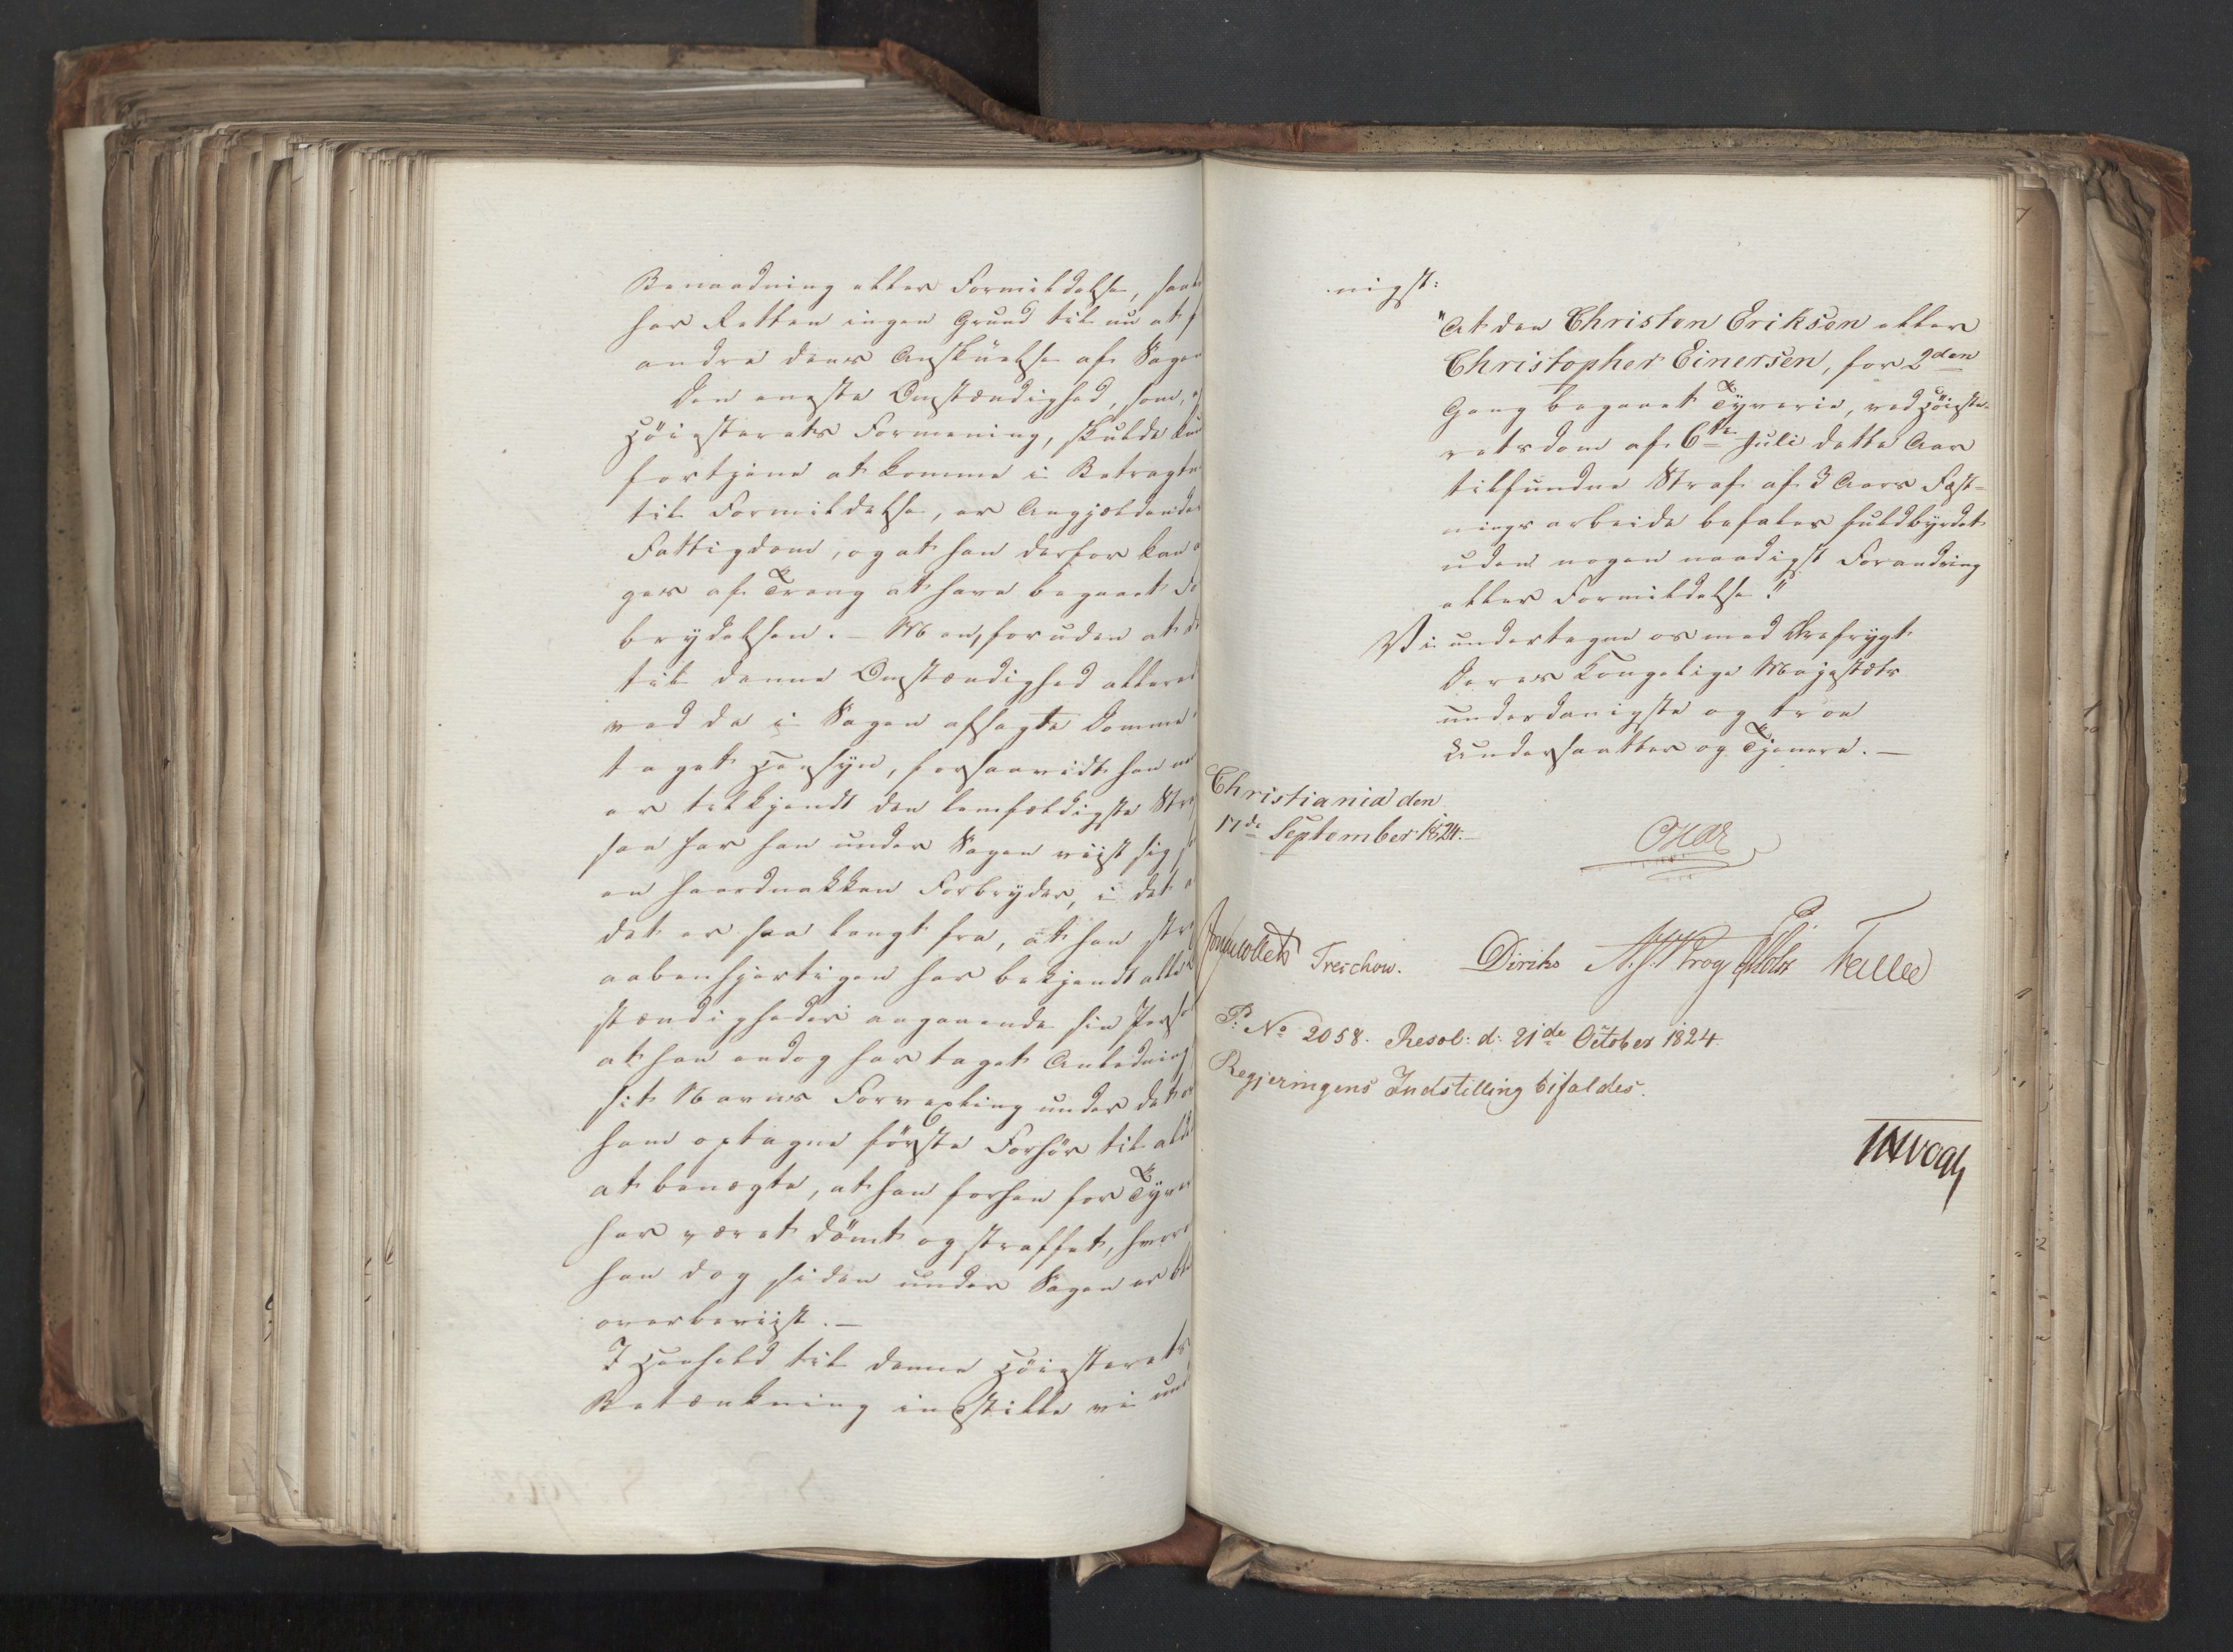 Benaadning eller Formildelse, saa
har Retten ingen Grund til nu at f
andre dens Anskuelse af Sagen
Den eneste Omstændighed, som,
Höiesterets Formening, skulde kun
fortjene at komme i Betragtn
til Formildelse, er Angjeldendes
Fattigdom, og at han derfor kan
ges af Trang at have begaaet Fo
brydelsen. – Men, foruden at d
til denne Omstændighed allered
ved de i Sagen afsagte Domme
taget Hensyn, forsaavidt han
er tilkjendt den lemfældigste Str
saa har han under Sagen viist sig s
en haardnakken Forbryder, i det
det er saa langt fra, at han str
aabenhjertigen har bekjendt alle
stændigheder angaaende sin Pers
at han endog har taget Anledning
sit Navns Forvexling under det o
ham optagne förste Forhör til alde
at benegte, at han forhen for Tyve
har været dömt og straffet, hvor
han dog siden under Sagen er ble
overbeviist. –
I Henhold til denne Höiesterets
Betænkning indstille vi und
nigst:
"At den Christen Eriksen eller
Christopher Einersen, for 2den
Gang begaaet Tyverie, ved Höieste-
retsdom af 6te Juli dette Aar
tilfundne Straf af 3 Aars Fæst-
ningsarbeide befales fuldbyrdet
uden nogen naadigst Forandring
eller Formildelse."
Vi undertegne os med Ærefrygt
Deres Kongelige Majestæts
underdanigste og troe
Undersaatter og Tjenere. –
Christiania den
17de September 1824. –
Jonas Collett Treschow. Diriks Krog Fasting
P: No 2058. Resol: d: 21de October 1824.
Regjeringens Indstilling bifaldes.
JHVogt